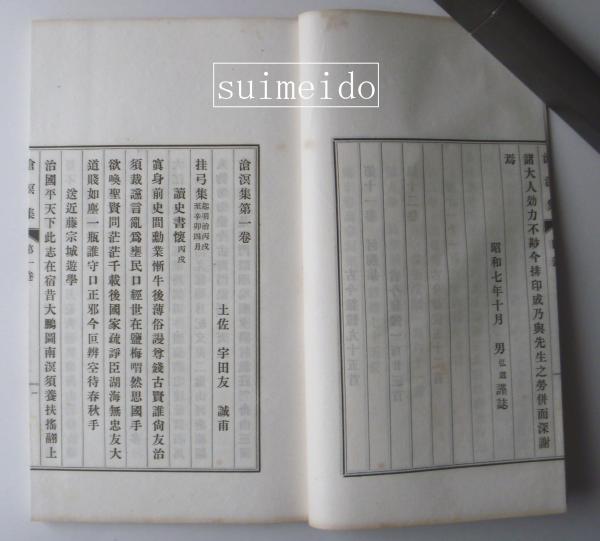 suimeido
諸大人効力不尠今排印成乃與先生之勞併而深謝
焉
昭和七年十月 男 弘道 謹誌
滄溟集第一卷
土佐 宇田友 誠甫
挂弓集 起明治丙戌至辛卯四月
讀史書懷 丙戌
寘身前史間勳業慚牛後薄俗謾尊錢古賢誰尙友治
須裁謡言亂爲壅民口經世在鹽梅喟然思國手
欲喚聖賢問茫茫千載後國家疏諍臣湖海無忠友大
道賤如塵一瓶誰守口正邪今叵辨空待春秋手
送近藤宗城遊學
治國平天下此志在宿昔大鵬圖南溟須養扶搖翮上
滄溟集 第一卷 一